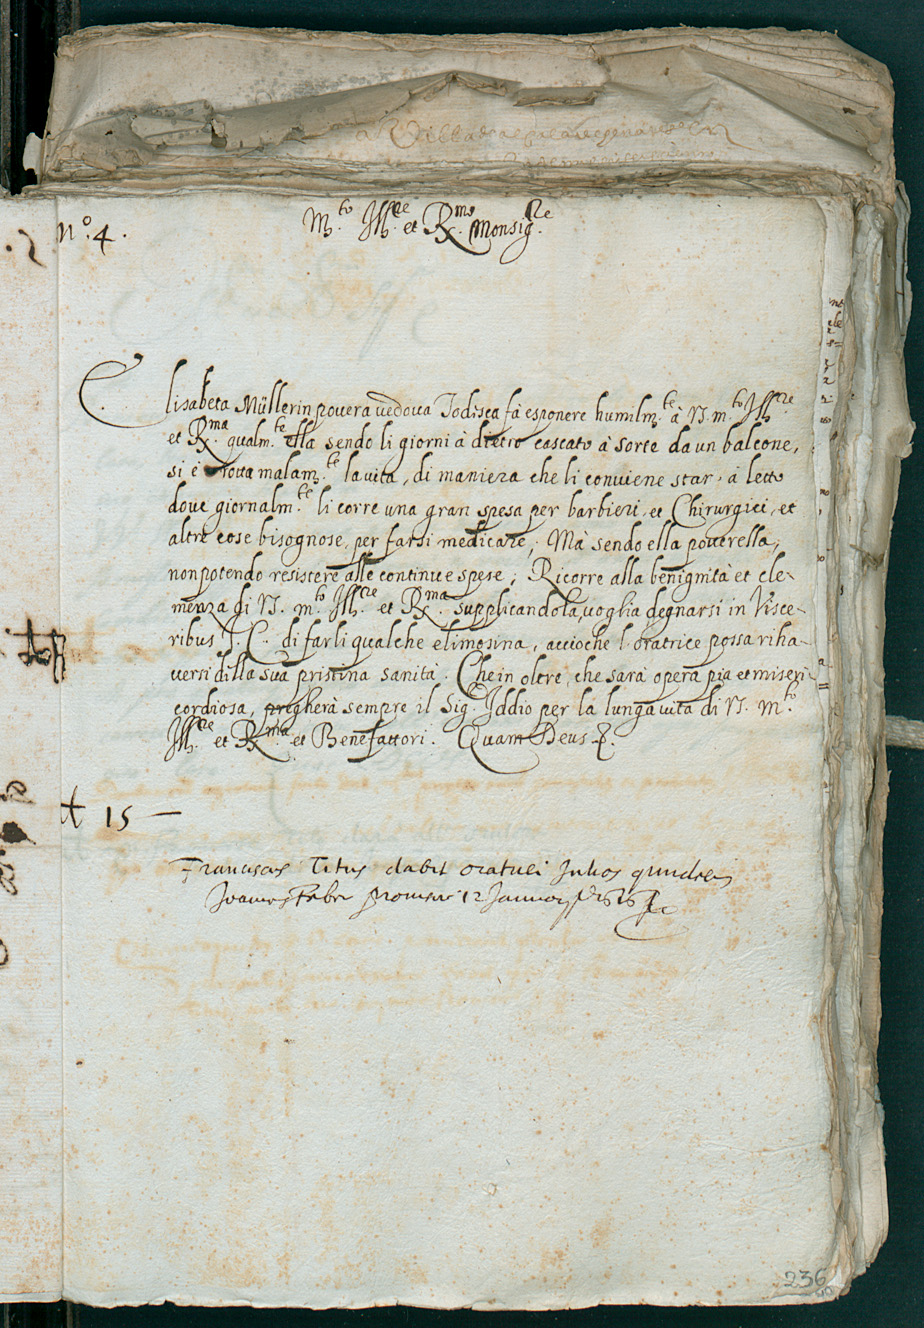 N.º 4.
M.to Ill.re et R.mo Monsig.re
Elisabeta Müllerin povera vedova Todisca fà esponere humilm.te à V. m.to Ill.re
et R.ma qualm.te ella sendo li giorni à dietro cascato à sorte da un balcone,
si è rotta malam.te la vita, di maniera che li conviene star à letto
dove giornalm.te li corre una gran spesa per barbieri, et Chirurgici, et
altre cose bisognose, per farsi medicare; Mà sendo ella poverella,
non potendo resistere alle continue spese; Ricorre alla benignità et cle-
menza di V. m.to Ill.re et R.ma supplicandola, voglia degnarsi in Visce-
ribus J. C. di farli qualche elimosina, accioche l'oratrice possa riha-
versi dilla sua pristina sanità. Che in oltre, che sarà opera pia et miseri-
cordiosa, pregherà sempre il Sig. Iddio per la lunga vita di V. M.to
Ill.re et R.ma et Benefattori. Quam Deus &.
15 —
Franciscus Titus dabit oratrici Julios quindecim
Joannes Faber 12 January
236